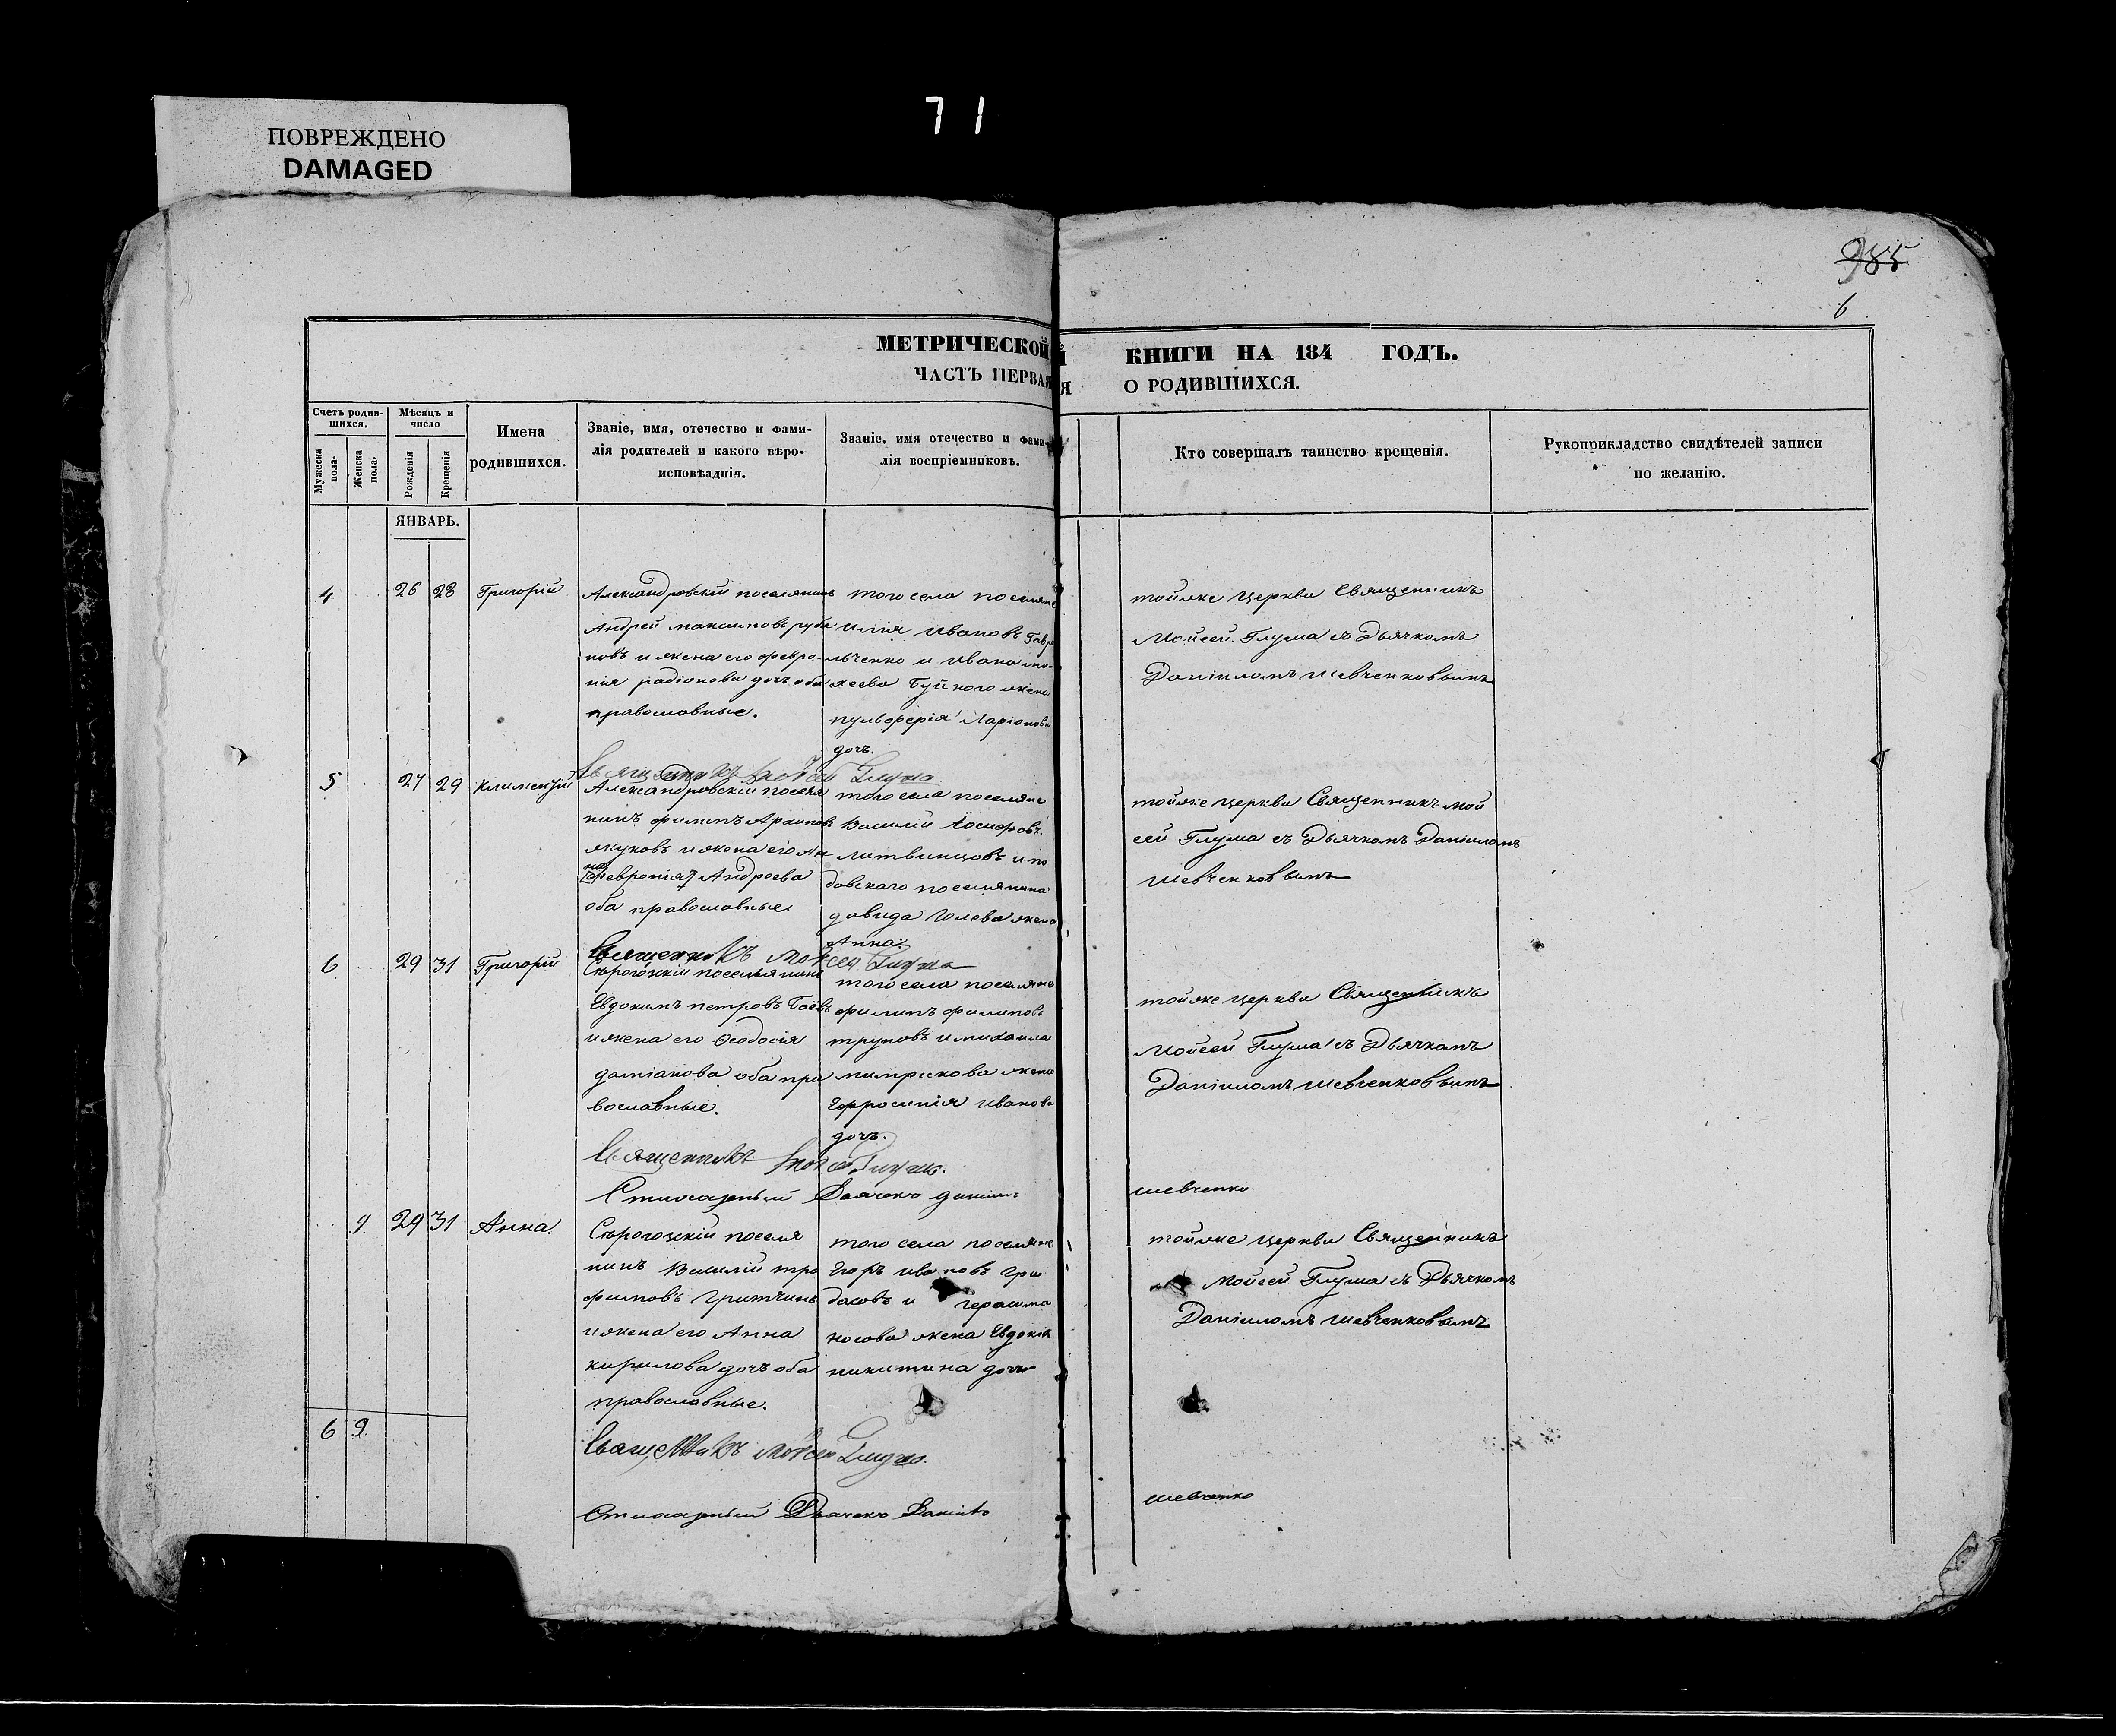 71
ПОВРЕЖДЕНО
DAMAGED
985
6
МЕТРИЧЕСКОЙ КНИГИ НА 184 ГОДЪ.
ЧАСТЬ ПЕРВАЯ О РОДИВШИХСЯ.
Счетъ родив-
шихся.
Мужеска
пола.
Женска
пола.
Мѣсяцъ и
число
Рожденія
Крещенія
Имена
родившихся.
Званіе, имя, отечество и фами-
лія родителей и какого вѣро-
исповѣданія.
Званіе, имя отечество и фами-
лія воспріемниковъ.
Кто совершалъ таинство крещенія.
Рукоприкладство свидѣтелей записи
по желанію.
ЯНВАРЬ.
4
26 28
Григорій
Александровскій поселянинъ
Андрей максимовъ
новъ и жена его февро-
нія радіонова дочь оба
православные.
того села поселяне
илія Ивановъ
и Ивана
жена
пульферія Ларіонова
дочь.
тойже церкви Священникъ
Мойсей Глума съ Дьячкомъ
Даніиломъ шевченковымъ
Священникъ Мойсей Глума
5
27 29
Климентій
Александровскій поселя
нинъ филипъ
жуковъ и жена его Ан
на
февронія Андреева
оба православные
того села поселяне
Василій
литвинцовъ и
поселянина
давида жена
Анна.
тойже церкви Священникъ мой
сей Глума съ Дьячкомъ Даніиломъ
шевченковымъ
Священникъ Мойсей Глума
6
29 31
Григорій
Сѣрогозскій поселянинъ
Евдокимъ петровъ Боевъ
и жена его Ѳеодосія
даміанова оба пра
вославные.
того села поселяне
филипъ филиповъ
труновъ и михаила
жена
Ефросинія иванова
дочь.
тойже церкви Священникъ
Мойсей Глума съ Дьячкомъ
Даніиломъ шевченковымъ
Священникъ Мойсей Глума.
Дьячекъ даніилъ шевченко
9
29 31
Анна
Сѣрогозскій поселя
нинъ Василій тро
фимовъ
и жена его Анна
кирилова дочь оба
православные.
того села поселяне
Егоръ ивановъ гри
басовъ и герасима
носова жена Евдокія
никитина дочь
тойже церкви Священникъ
Мойсей Глума съ Дьячкомъ
Даніиломъ шевченковымъ
6 9
Священникъ Мойсей Глума.
Дьячекъ Даніилъ шевченко